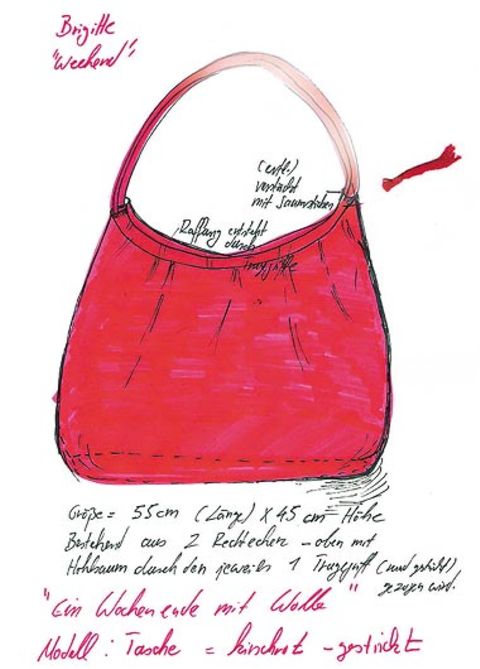 Brigitte
"Weekend"
(evtl.)
vernäht
mit Saumstichen
Raffung entsteht
durch
Tragegriffe
Größe = 55 cm (Länge) x 45 cm Höhe
Bestehend aus 2 Rechtecken – oben mit
Hohlsaum durch den jeweils 1 Tragegriff (rund gehäkelt)
gezogen wird.
"Ein Wochenende mit Wolle"
Modell: Tasche = kirschrot – gestrickt